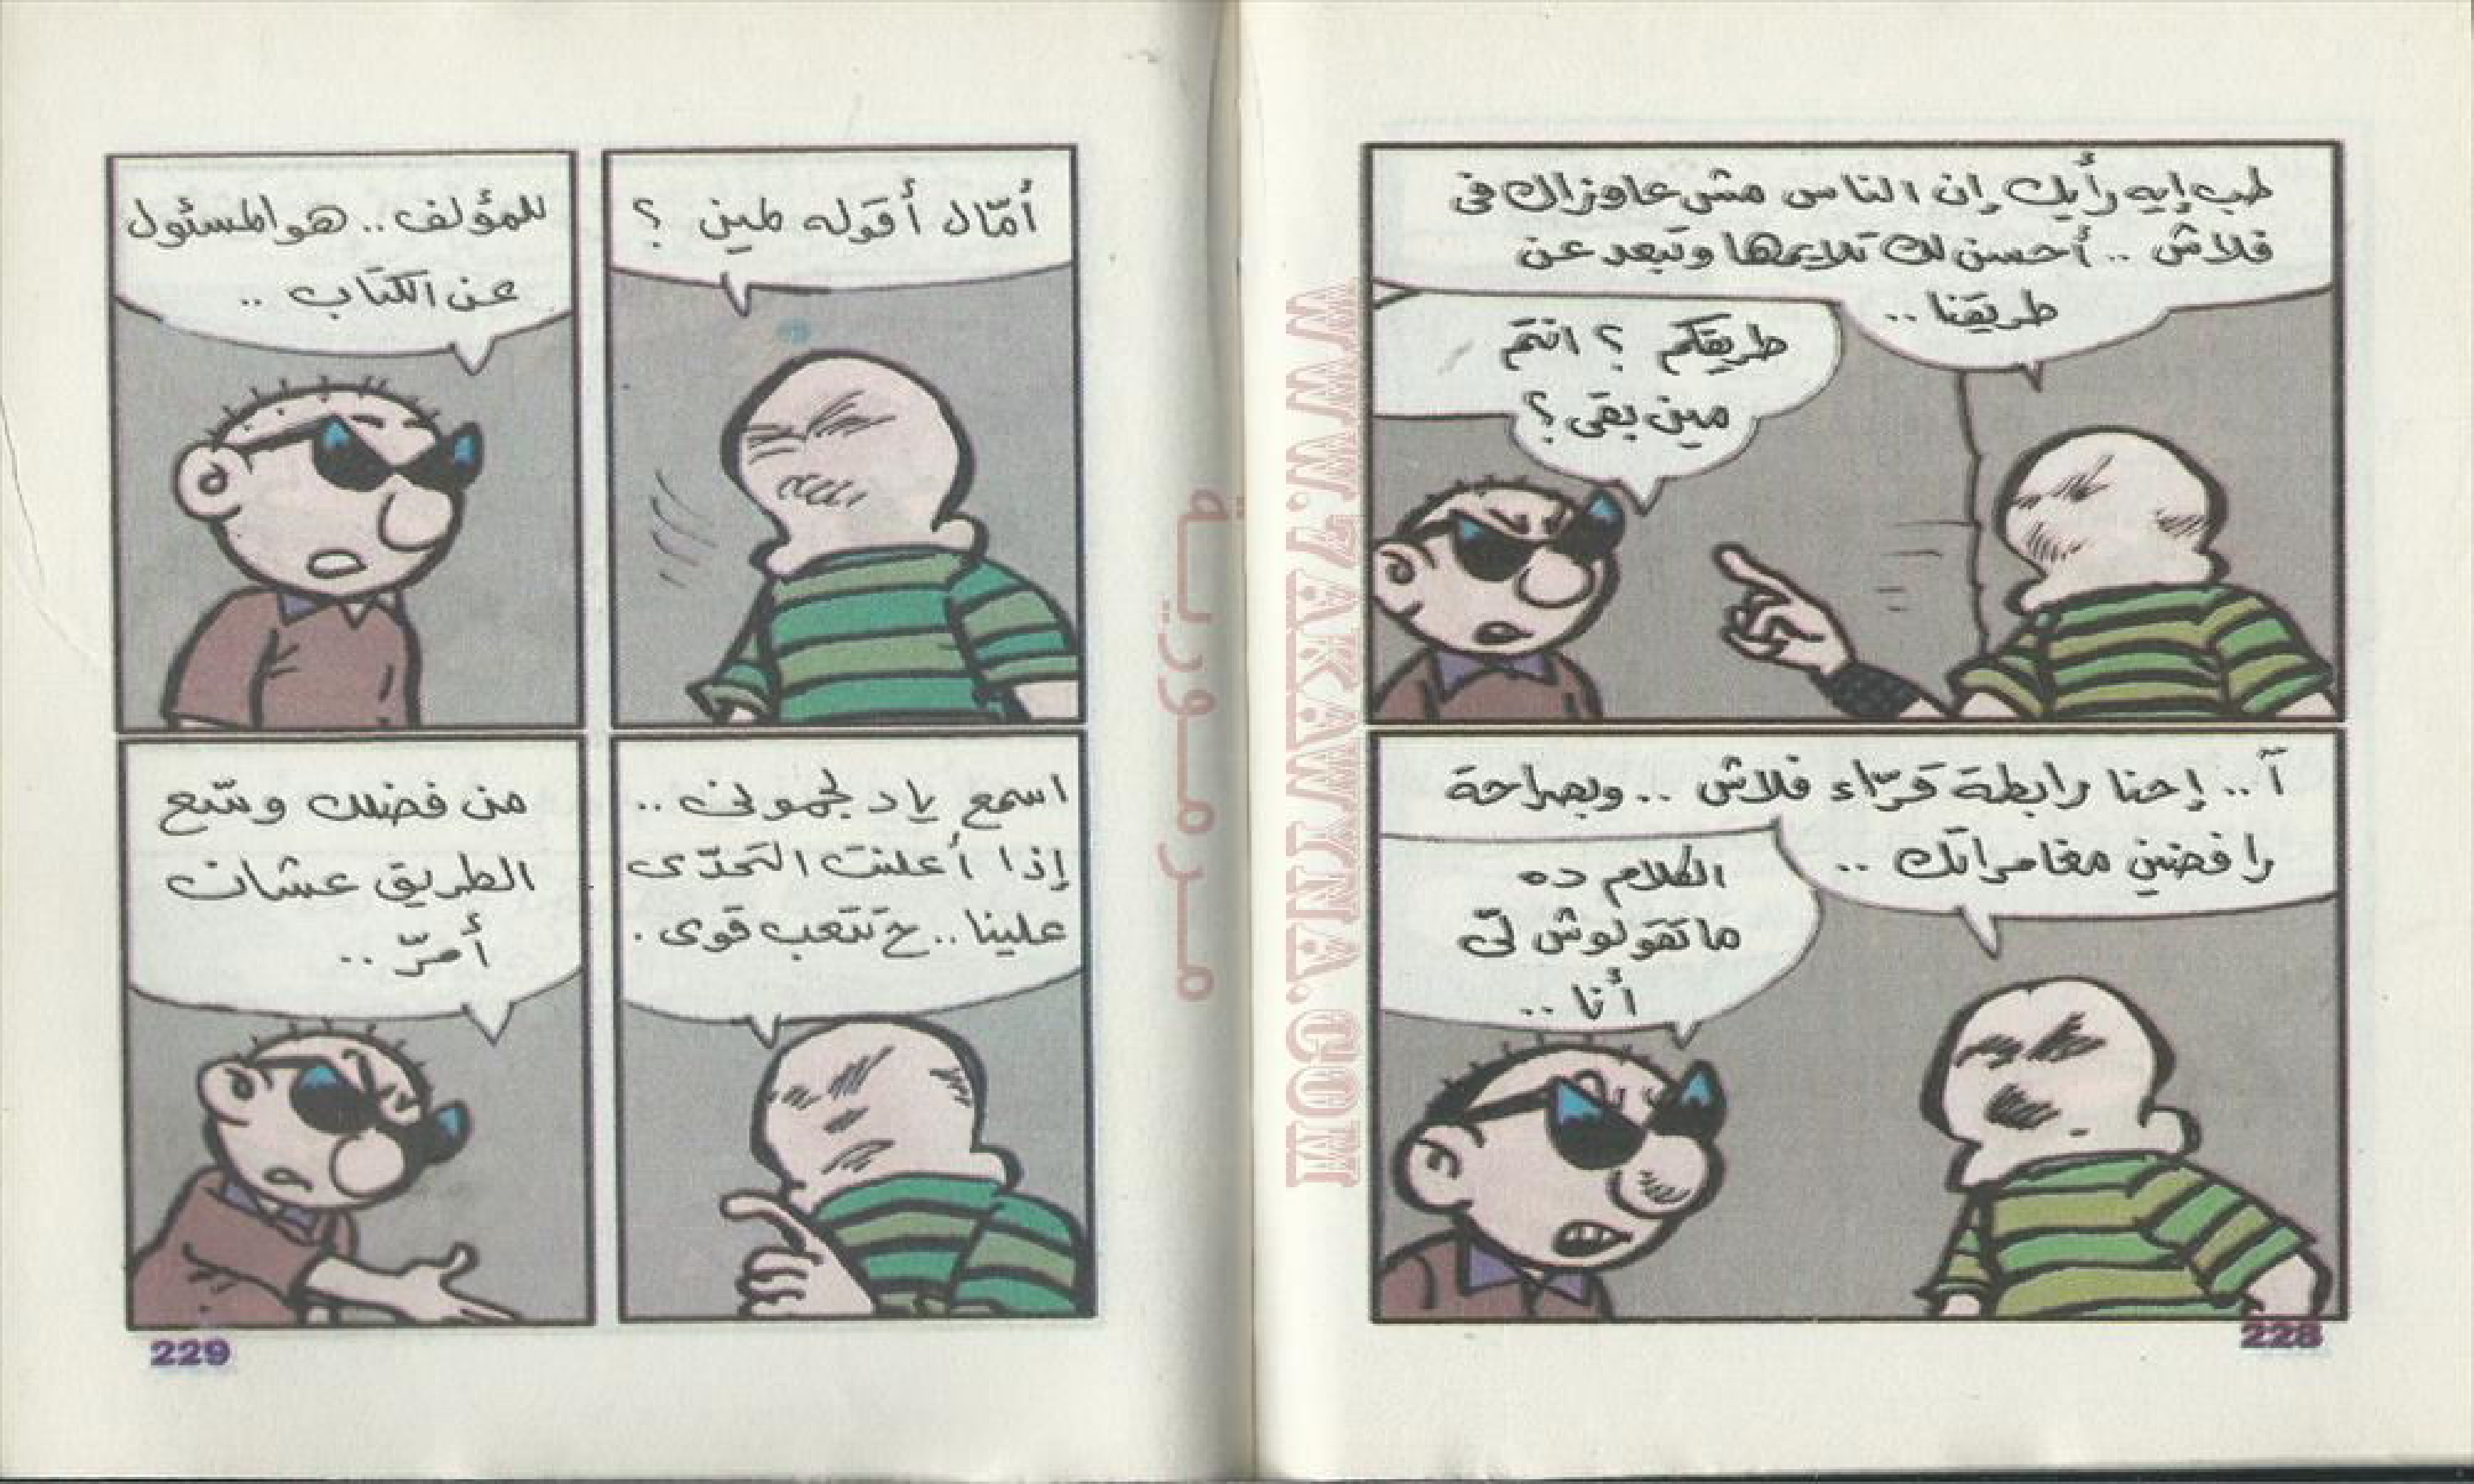 طب إيه رأيك إن الناس مش عاوزاك فى
فلاش .. أحسن لك تلايمها وتبعد عن
طريقنا ..
طريقكم ؟ انتم
مين بقى ؟
آ .. إحنا رابطة قرّاء فلاش .. وبصراحة
رافضين مغامراتك ..
الكلام ده
ماتقولوش لىّ
أنا ..
228
أمّال أقوله لمين ؟
للمؤلف .. هو المسئول
عن الكتاب ..
اسمع ياد لجمولى ..
إذا أعلنت التحدّى
علينا .. ح تتعب قوى .
من فضلك وسّع
الطريق عشان
أمرّ ..
229
مرمورية
WWW.7AKAWINA.COM